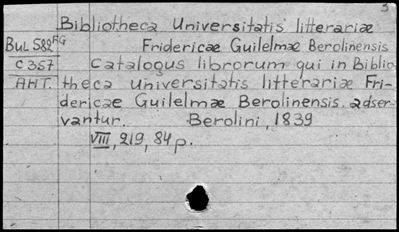 3
Bibliotheca Universitatis litterariæ
Bul 582 FG Fridericæ Guilelmæ Berolinensis
C 357 Catalogus librorum qui in Biblio
АНТ. theca universitatis litterariæ Fri-
dericæ Guilelmæ Berolinensis adser-
vantur. Berolini, 1839
VIII, 219, 84 p.